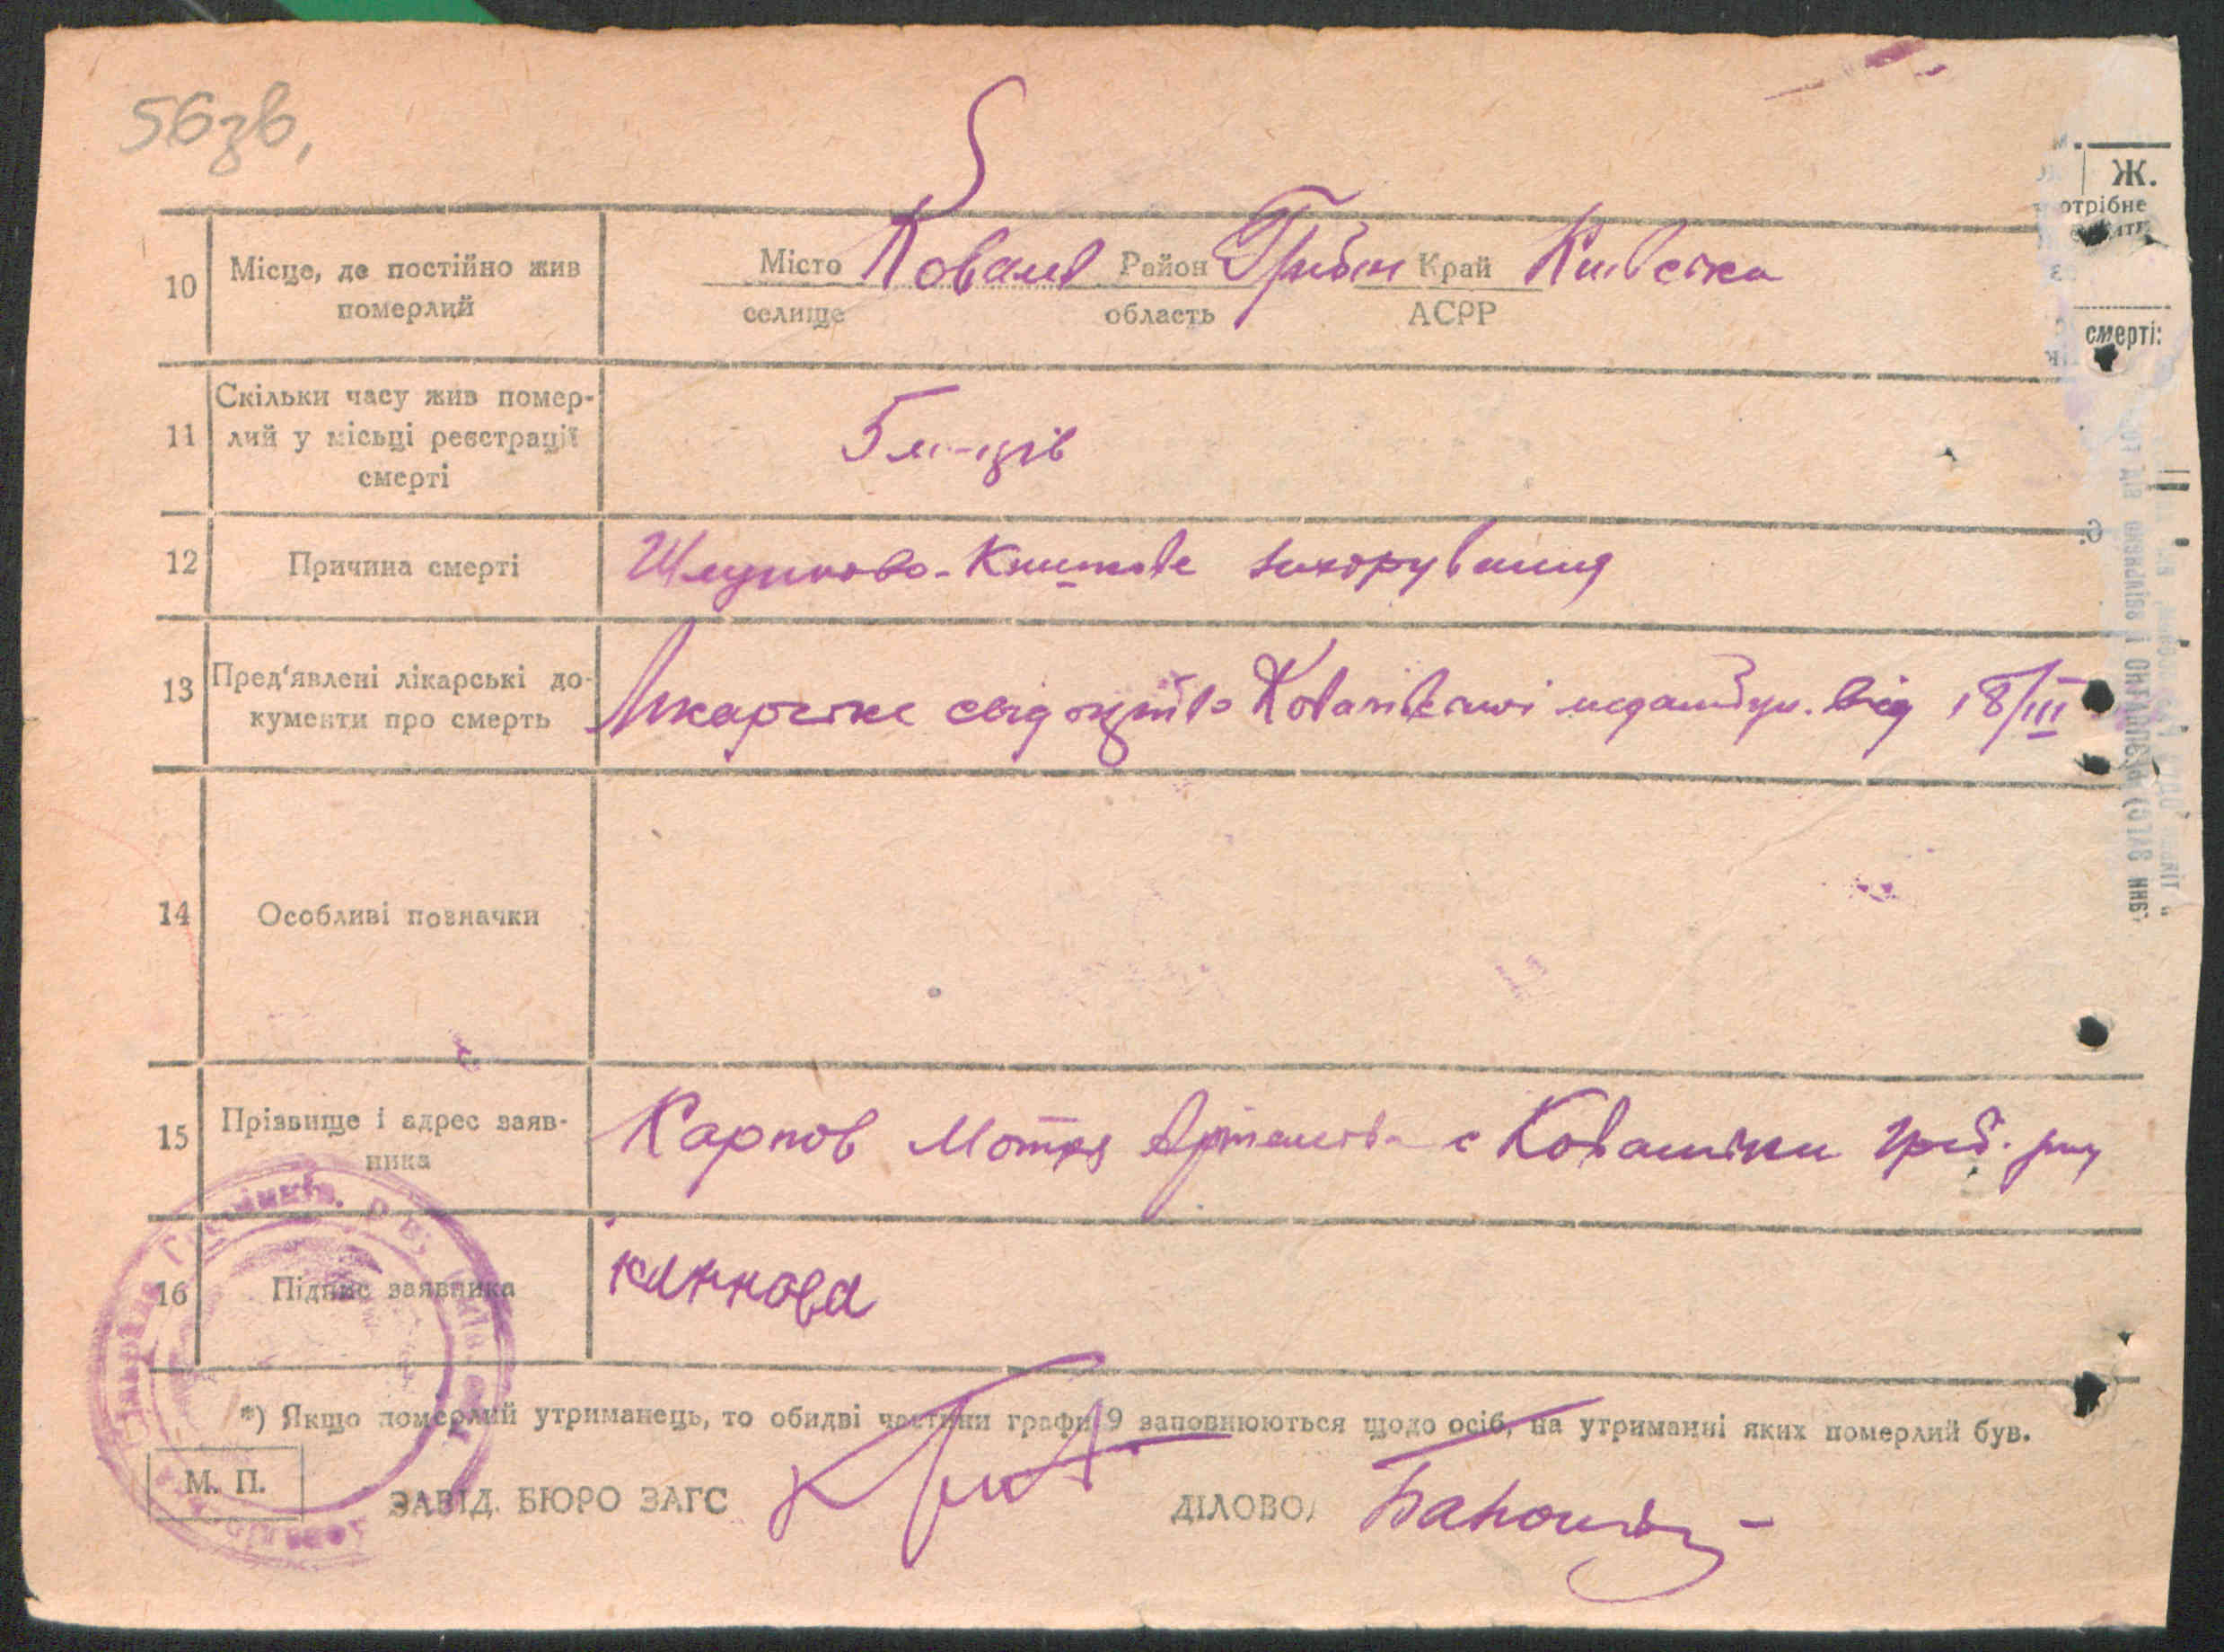 56зв,
Ж.
отрібне
смерті:
10 Місце, де постійно жив померлий
Місто Ковалів Район Гребін Край Київська
селище область АСРР
11 Скільки часу жив помер-
лий у місьці реєстрації
смерті
5 м-ців
12 Причина смерті Шлунково-Кишкове захорування
13 Пред'явлені лікарські до-
кументи про смерть
Лікарське свідоцтво Ковалівської медамбул. від 18/III
14 Особливі позначки
15 Прізвище і адрес заяв-
ника
Карпов Мотря с Ковалівки Греб. р-ну
16 Підпис заявника
*) Якщо померлий утриманець, то обидві частини графи 9 заповнюються щодо осіб, на утриманні яких померлий був.
М. П.
ЗАВІД. БЮРО ЗАГС ДІЛОВО